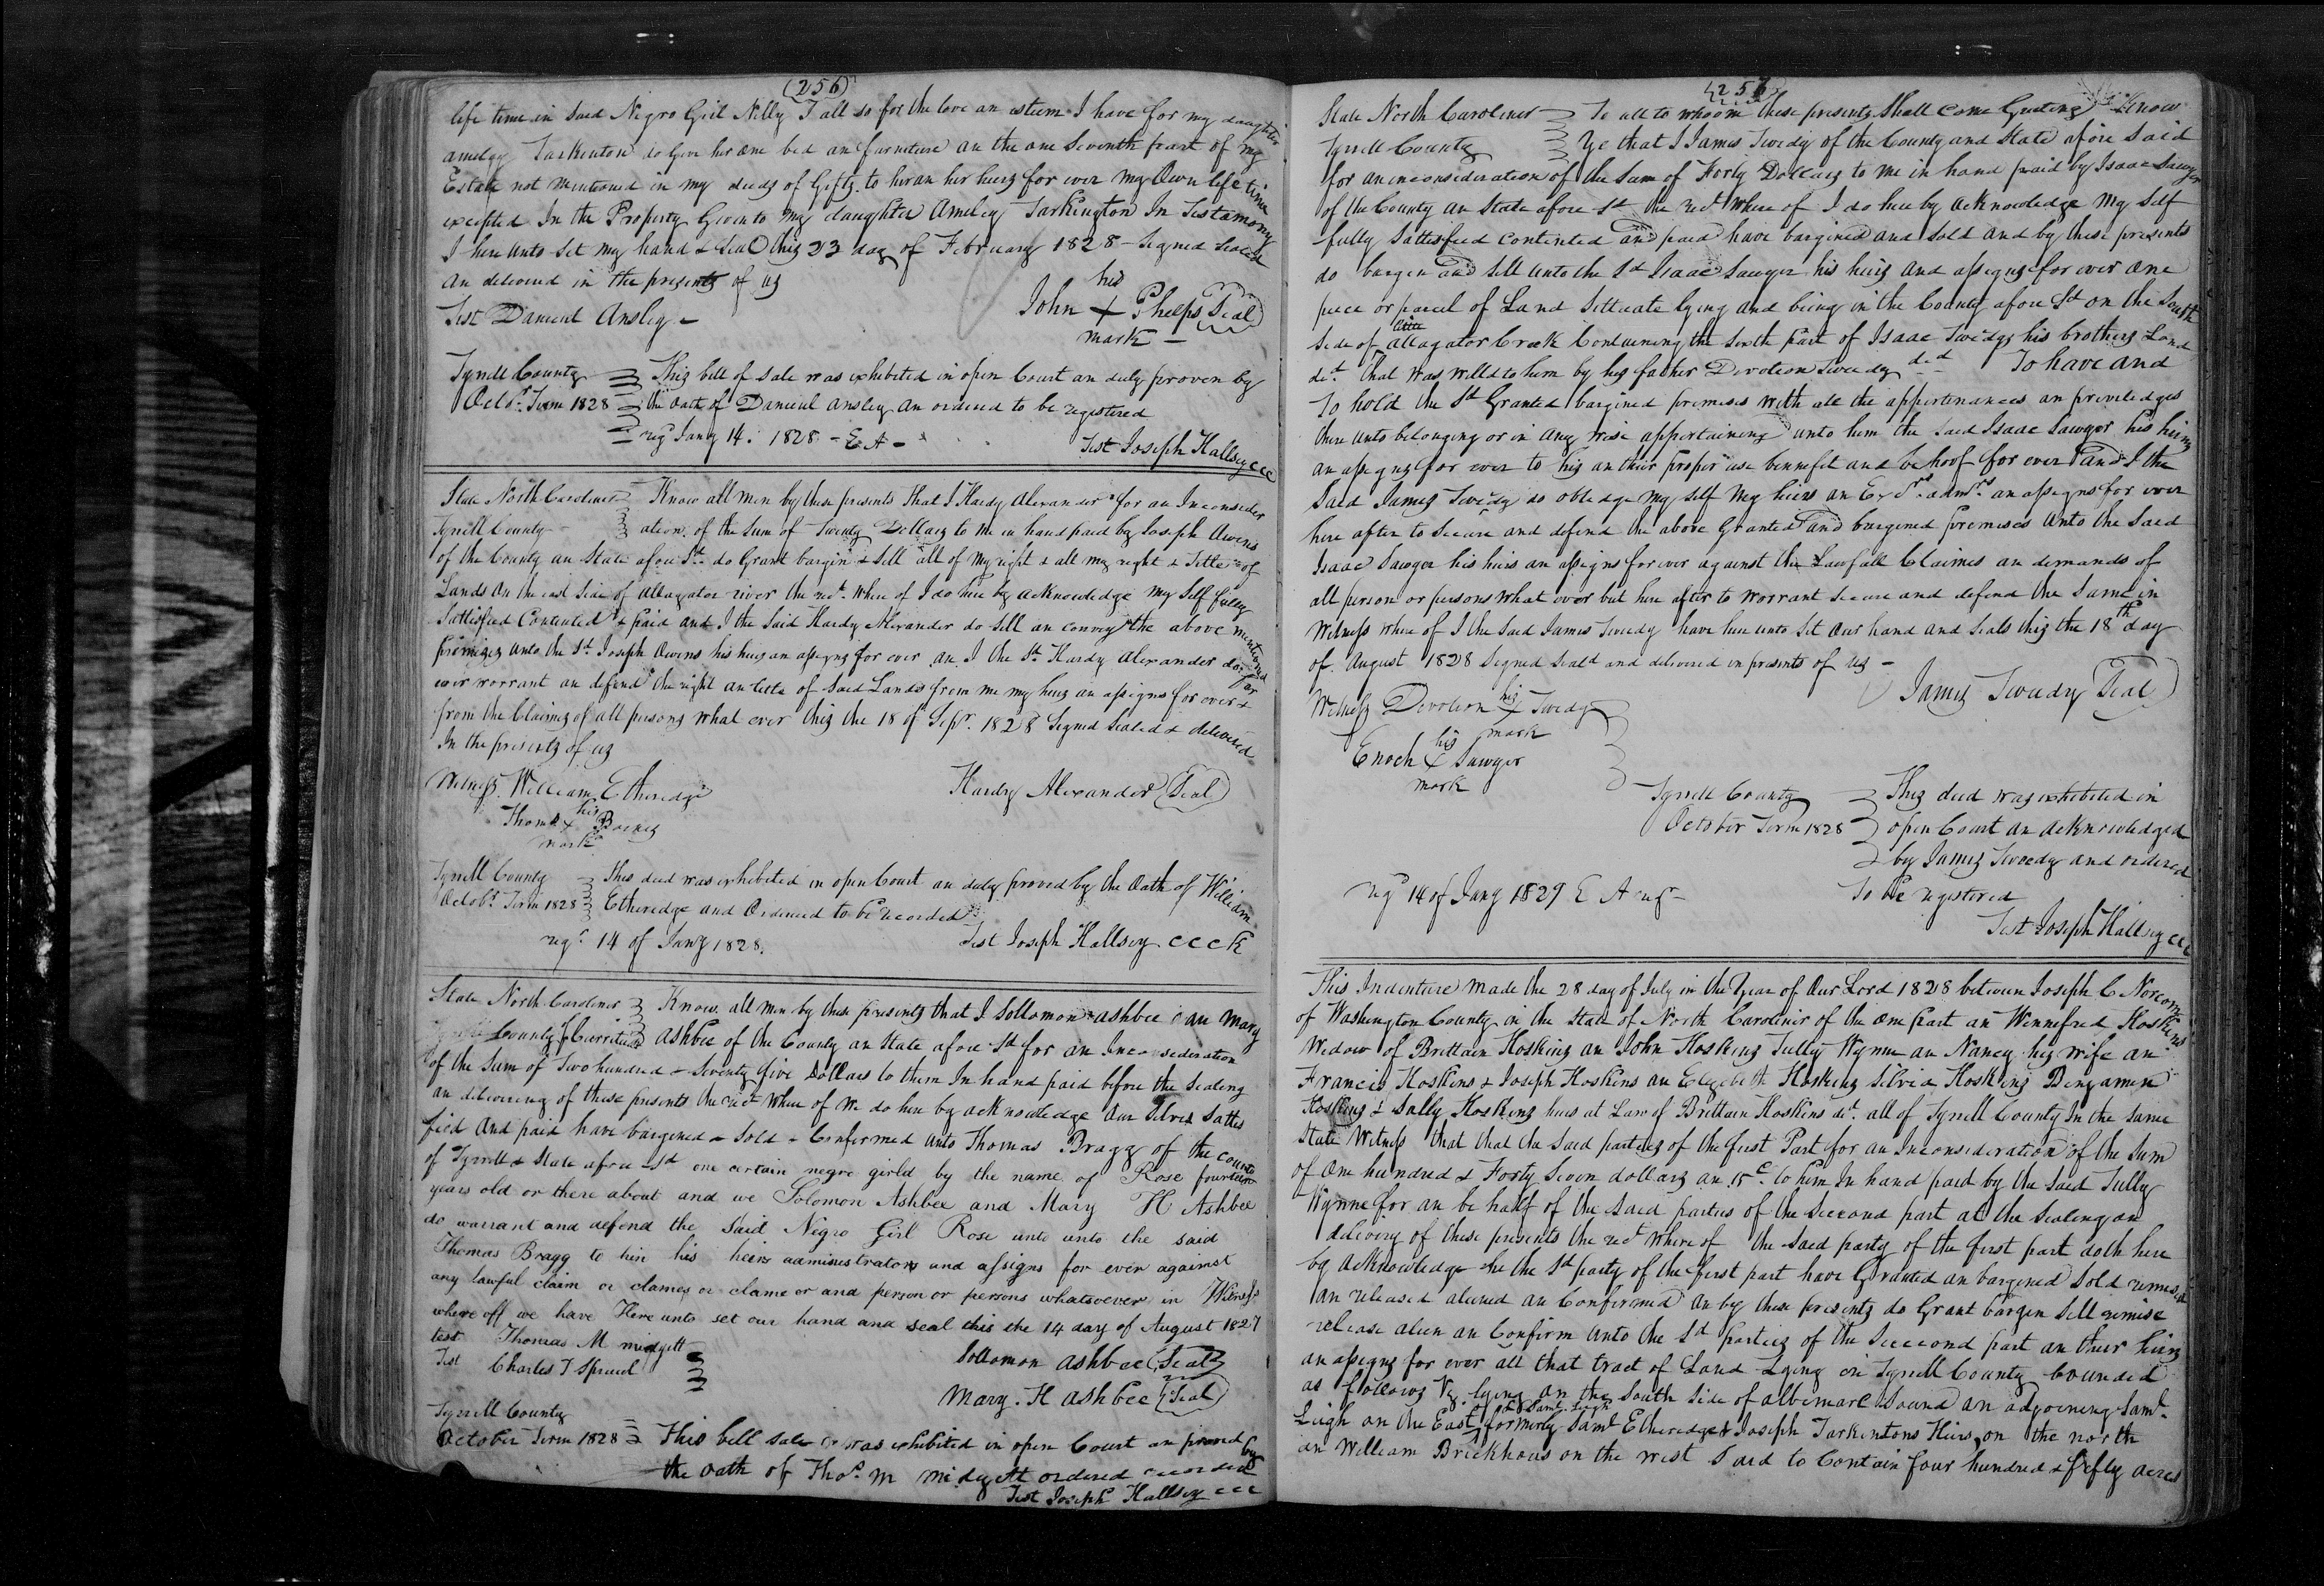 (256)
life time in said Negro Girl Nelly I all so for the love an esteem I have for my daughter
amelgy Tarkenton do Give her one bed an furneture an the one Seventh part of my
Estate not mentioned in my deeds of Gifts. to her an her heirs for ever my Own life time
excepted In the Property Given to my daughter Ameley Tarkington In Testamony
I here unto Set my hand & Seal this 23 day of February 1828 - Signed Sealed
an delivered in the presents of us
his
John + Phelps Seal
mark -
Test Daneul Ansley -
Tyrrell County This bill of sale was exhibited in open Court an duly proven by
Octor. Term 1828 the Oath of Daneul ansley an ordered to be registered
regd Jany 14. 1828 - E A -
Test Joseph Hallsey ccc
State North Caroliner Know all men by these presents That I Hardy Alexander for an Inconsider
Tyrrell County ation. of the Sum of Twenty Dollars to me in hand paid by Joseph Owens
of the County an State afore Sd. do Grant bargin & Sell all of my right & all my right & Title of
Lands on the east Side of allagator river the rect. where of I do here by acknowledge my Self fully
Sattisfied Contented & paid and I the Said Hardy Alexander do Sell an convey the above mentioned
premises unto the Sd. Joseph Owens his heirs an assigns for ever an I the Sd. Hardy Alexander do for
ever worrant an defend the right an title of Said Lands from me my heirs an assigns for ever &
from the Claimes of all persons what ever this the 18 of Sepr. 1828 Signed Sealed & delivered
In the presents of us
Witness. William Etheridge
Hardy Alexander (Seal)
his
Thomas +
mark
Tyrrell County This deed was exhibited in open Court an duly proved by the Oath of William
Octobr. Term 1828 Etheredge and Ordered to be recorded
regd. 14 of Jany 1828.
Test Joseph Hallsey ccck
State North Caroliner Know all men by these presents that I Sollomon ashbee an Mary
County Currituck ashbee of the County an State afore Sd for an Inconsideration
of the Sum of Two hundred & Seventy five Dollars to them In hand paid before the Sealing
an delivering of these presents the rect where of we do here by acknowledge Our Selves Sattis
fied And paid have bargened & Sold & Confermed unto Thomas Bragg of the County
of Tyrrell & State afore Sd one certain negro girld by the name of Rose fourteen
years old or there about and we Solomon Ashbee and Mary H Ashbee
do warrant and defend the said Negro Girl Rose unto unto the said
Thomas Bragg to him his heirs administrators and assigns for ever against
any lawful claim or clames or clame or and person or persons whatsoever in Witness
where off we have Here unto set our hand and seal this the 14 day of August 1827
test Thomas M midgett
Test Charles T Spruel
Sollomon ashbee (Seal)
Mary. H ashbee (Seal)
Tyrrell County
October Term 1828 This bill sale was exhibited in open Court an proved by
the oath of Thos. M midgett ordered recorded
Test Joseph Hallsey ccc
257
State North Caroliner To all to whoom these presents Shall Come Greeting Know
Tyrrell County Ye that I James Twedy of the County and State afore Said
for an inconsideration of the Sum of Forty Dollars to me in hand paid by Isaac Sawyer
of the County an State afore Sd the rect where of I do here by acknowledge my Self
fully Sattisfied contented and paid have bargined and Sold and by these presents
do bargen and Sell unto the Sd Isaac Sawyer his heirs and assigns for ever one
piece or parcel of Land Sittuate lying and being in the County afore Sd on the South
Side of allagator Creek Containing the Sixth part of Isaac Twedys his brothers Land
decd. that was willd to him by his father Devotion Tweedy decd To have and
To hold the Sd Granted bargined premises with all the appertenances an priviledges
there unto belonging or in any wise appertaining unto him the Said Isaac Sawyer his heirs
an assigns for ever to his an their proper use bennefit and be hoof for ever and I the
Said James Twedy do obledge my Self my heirs an Exrs. admrs. an assigns for ever
here after to Secure and defend the above Granted and bargened premises unto the Said
Isaac Sawyer his heirs an assigns for ever against the Lawfull Claimes an demands of
all person or persons what ever but here after to worrant secure and defend the Same in
Witness where of I the Said James Tweedy have here unto Set Our hand and Seals this the 18th day
of August 1828 Signed Seald and delivered in presents of us -
James Tweedy Seal
Witness Devotion his + Twedy
mark
Enoch his + Sawyer
mark
Tyrrell County This deed was exhibited in
October Term 1828 open Court an acknowledged
by James Tweedy and ordered
To be registered
regd 14 of Jany 1829 E A regr
Test Joseph Hallsey ccc
This Indenture made the 28 day of July in the Year of Our Lord 1828 between Joseph C Norcom
of Washington County in the State of North Caroliner of the one part an Winnefred Hoskins
Widow of Brittain Hoskins an John Hoskins Tully Wynne an Nancy his wife an
Francis Hoskins & Joseph Hoskins an Elezebeth Hoskins Silvia Hoskins Benjamen
Hoskins & Sally Hoskins heirs at Law of Brittain Hoskins decd. all of Tyrrell County In the Same
State Witness that that the Said parties of the first Part for an Inconsideration of the Sum
of One hundred & Forty Seven dollars an 15c. to him In hand paid by the Said Tully
Wynne for an be half of the Said parties of the Second part at the Sealing an
delivery of these presents the rect where of the Said party of the first part doth here
by acknowledge he the Sd party of the first part have Granted an bargened Sold remised
an released aliened an Confirmed an by these presents do Grant bargen Sell remise
release alien an Confirm unto the Sd parties of the Second part an their heirs
an assigns for ever all that tract of Land Lying in Tyrrell County bounded
as follows Vz. lying on the South Side of albemarl Sound an adjoening Saml.
Leigh on the East formerly Saml Etheredge & Joseph Tarkintons Heirs, on the north
an William Brickhous on the west Said to Contain four hundred & fifty acres